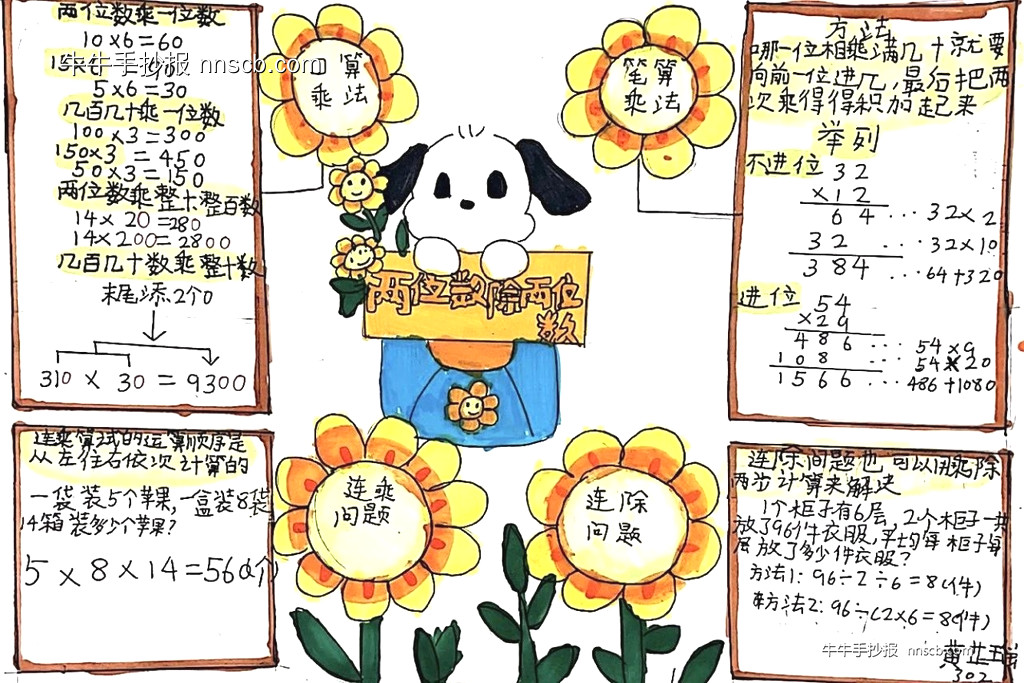 两位数乘一位数
10×6=60
牛牛手抄报 nnscb.com
5×6=30
几百几十乘一位数
100×3=300
150×3=450
50×3=150
两位数乘整十、整百数
14×20=280
14×200=2800
几百几十数乘整十数
末尾添2个0
310×30=9300
口算
乘法
笔算
乘法
方法
哪一位相乘满几十就要
向前一位进几,最后把两
次乘得得积加起来
举列
不进位
32
×12
64 ···32×2
32 ···32×10
384 ···64+320
进位
54
×29
486 ···54×9
108 ···54×20
1566 ···486+1080
两位数除两位
数
连乘算试的运算顺序是
从左往右依次计算的
一袋装5个苹果,一盒装8袋
14箱装多少个苹果?
5×8×14=560(个)
连乘
问题
连除
问题
连除问题也可以用乘除
两步计算来解决
1个柜子有6层,2个柜子一共
放了96件衣服,平均每柜子每
层放了多少件衣服?
方法1:96÷2÷6=8(件)
方法2:96÷(2×6=8(件)
牛牛手抄报 nnscb.com
302